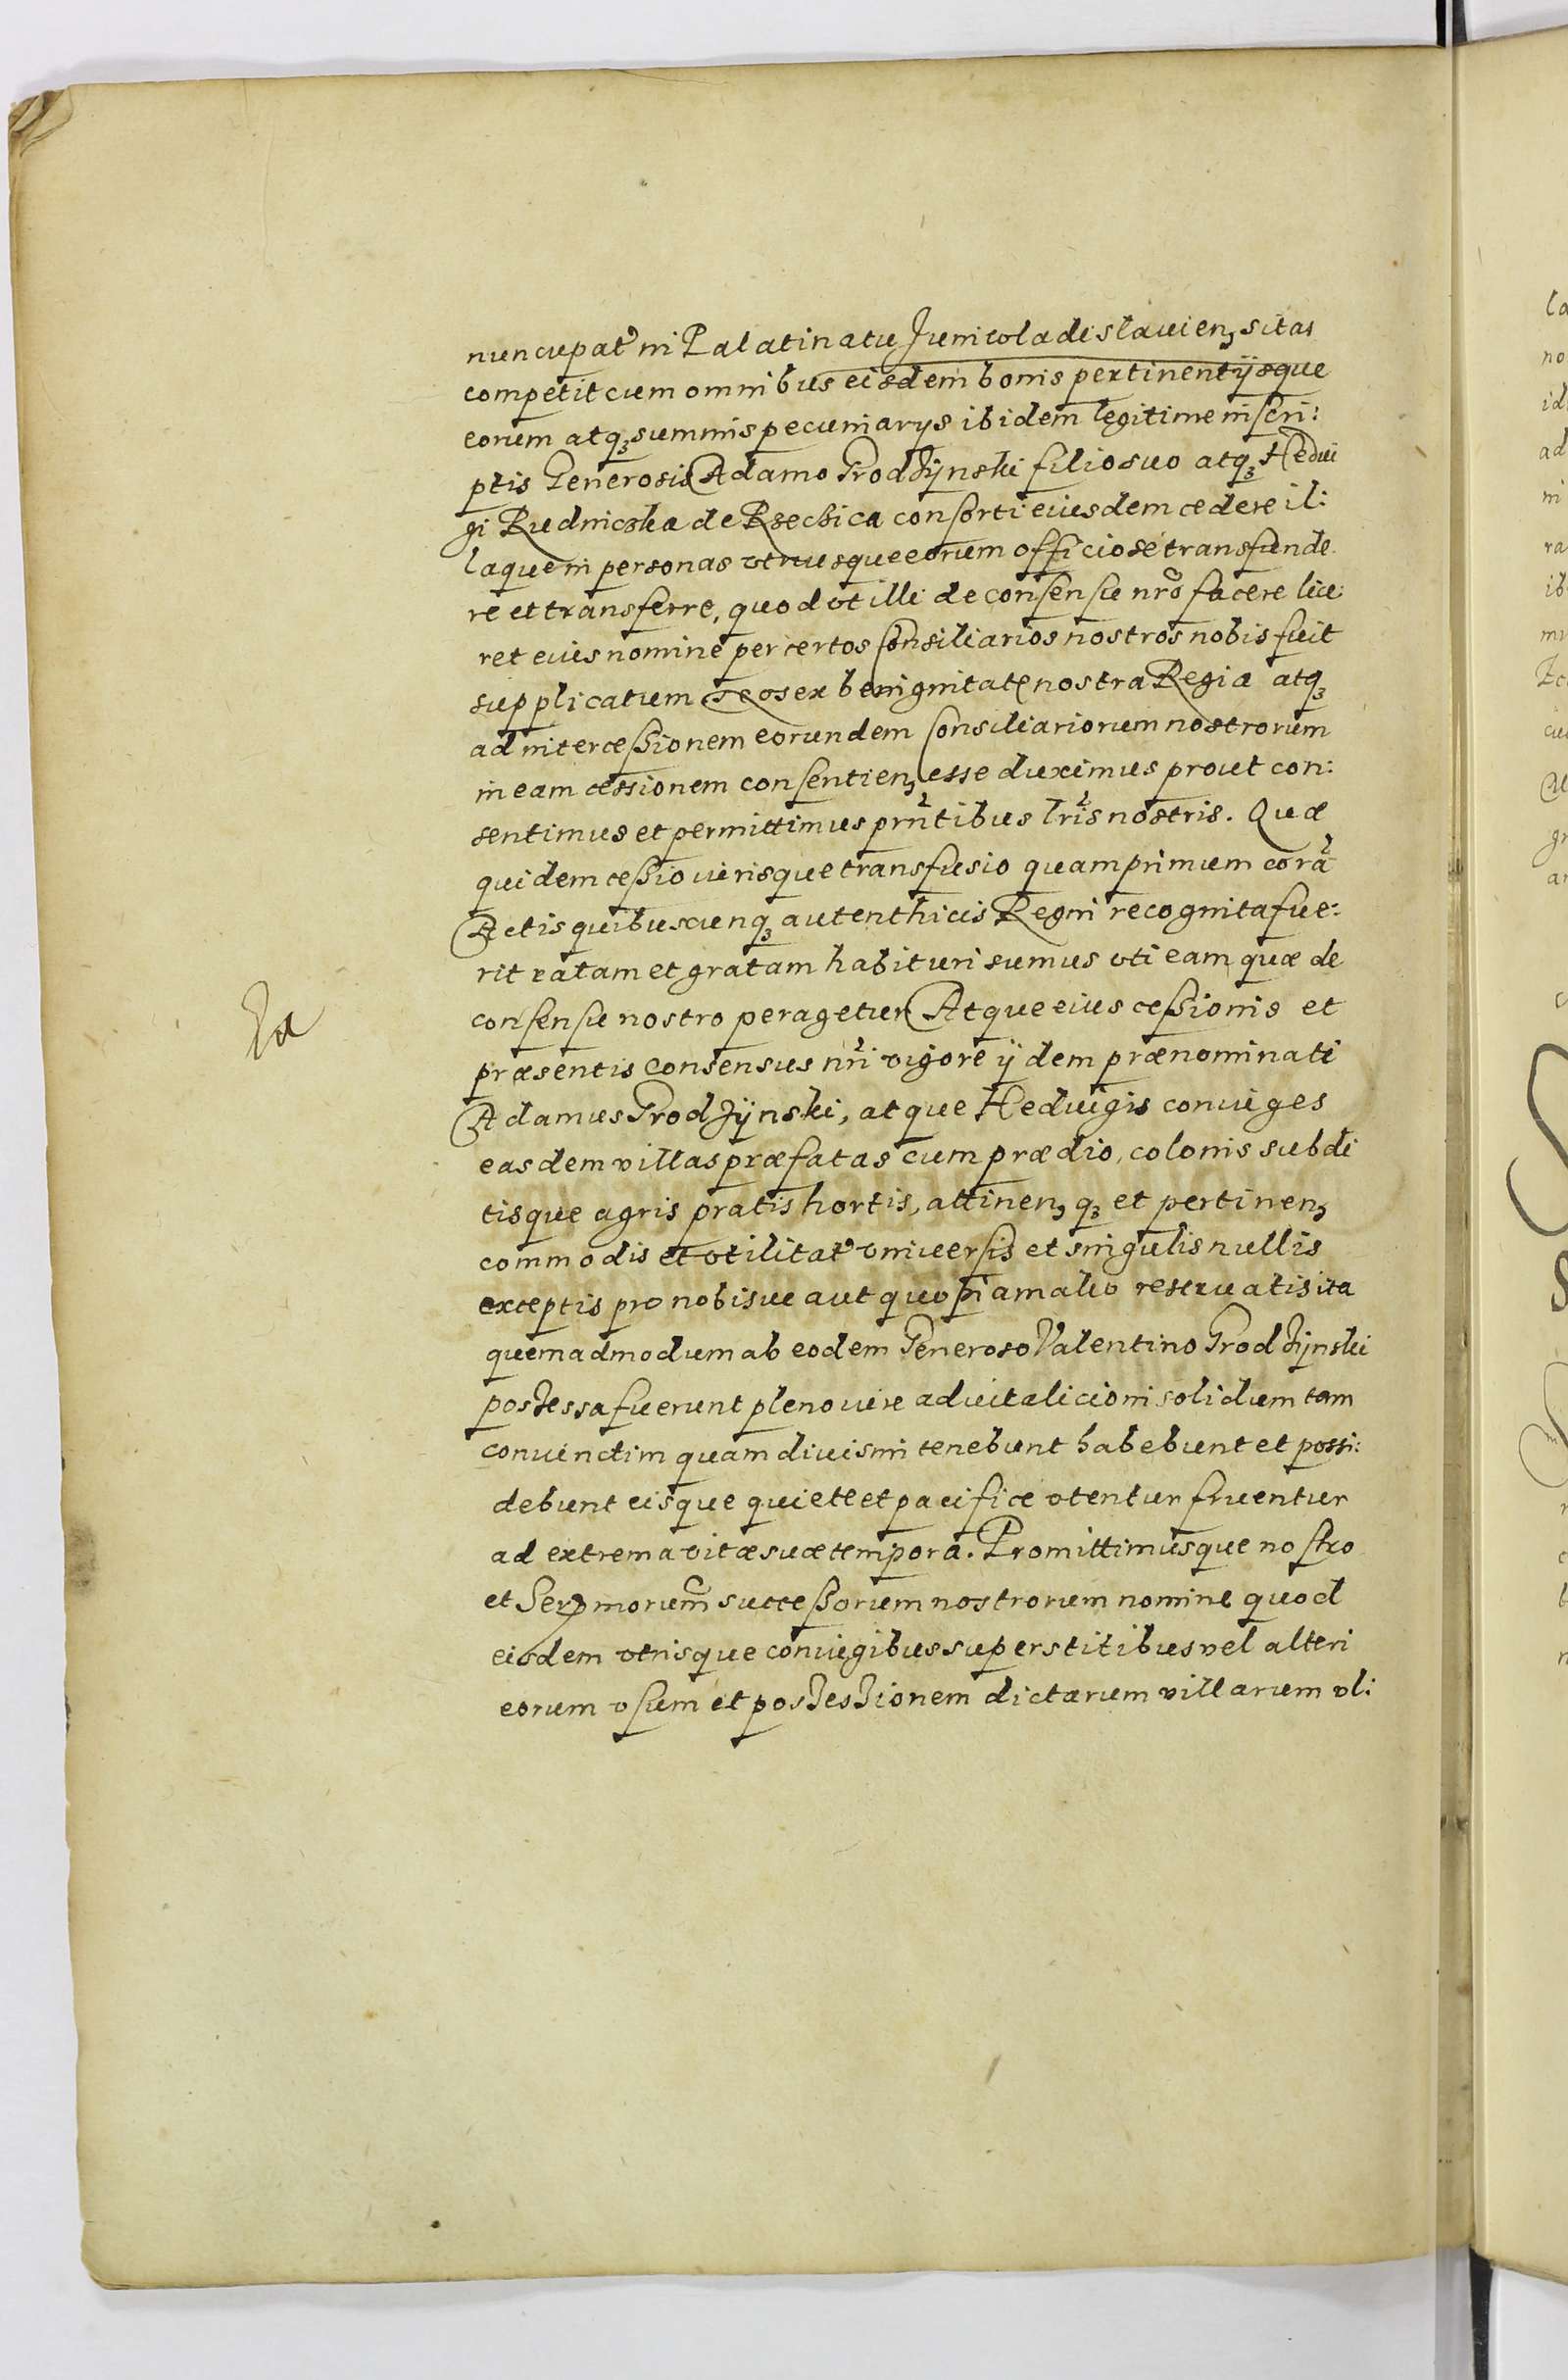 nuncupat in Palatinatu Juniwladislauien, sitas
competit cum omnibus eisdem bonis pertinentijsque
eorum atq3 summis pecuniarys ibidem legitime inscri:
ptis Generosis Adamo Grodzÿnski filio suo atq3 Hedui
gi Rudniczka de consorti eiusdem cedere il:
laque in personas utriusque eorum officiose transfunde
re et transferre, quod ut illi de consensu nro facere lice:
ret eius nomine per certos Consiliarios nostros nobis fuit
supplicatum Nos ex benignitate nostra Regia atq3
ad intercessionem eorundem Consiliariorum nostrorum
in eam cessionem consentien, esse duximus prout con:
sentimus et permittimus prntibus lris nostris. Quæ
quidem cessio iurisque transfusio quamprimum cora
Actis quibuscunq3 autenthicis Regni recognita fue:
rit ratam et gratam habituri sumus uti eam quæ de
consensu nostro peragetur Atque eius cessionis et
præsentis consensus nri vigore ijdem prænominati
Adamus Grodzÿnski, atque Heduigis coniuges
easdem villas præfatas cum prædio, colonis subdi
tisque agris pratis hortis, attinen, q3 et pertinen,
commodis et utilitat universis et singulis nullis
exceptis pro nobisue aut quopiam alio reseruatis ita
quemadmodum ab eodem Generoso Valentino Grodzÿnski
possessa fuerunt pleno iure aduitalicio in solidum tam
coniunctim quam diuisim tenebunt habebunt et possi:
debunt eisque quiete et pacifice utentur fruentur
ad extrema vitæ suæ tempora. Promittimusque nostro
et Sermorum successorum nostrorum nomine quod
eisdem utrisque coniugibus superstitibus vel alteri
eorum usum et possessionem dictarum villarum vl: